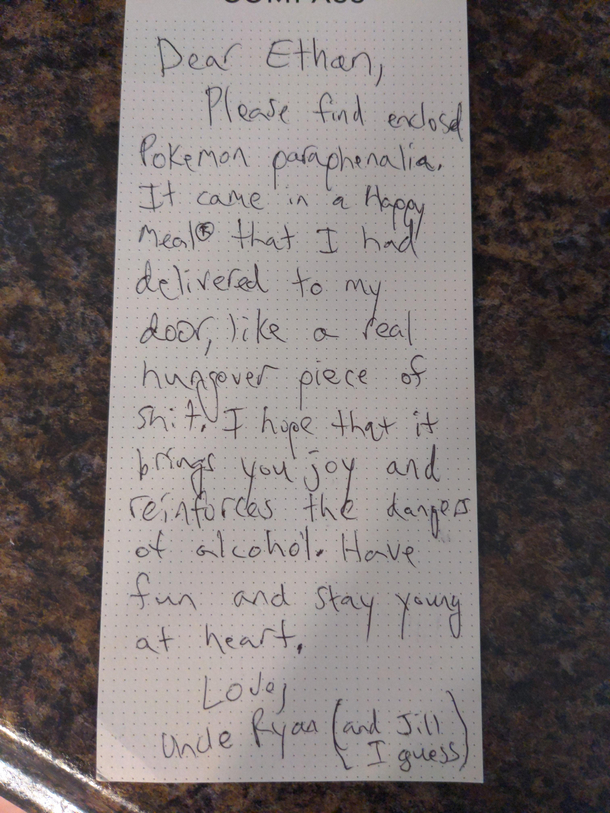 COMPASS
Dear Ethan,
Please find enclosed
Pokemon paraphenalia.
It came in a Happy
Meal® that I had
delivered to my
door, like a real
hungover piece of
shit. I hope that it
brings you joy and
reinforces the dangers
of alcohol. Have
fun and stay young
at heart.
Love,
Uncle Ryan (and Jill
I guess)